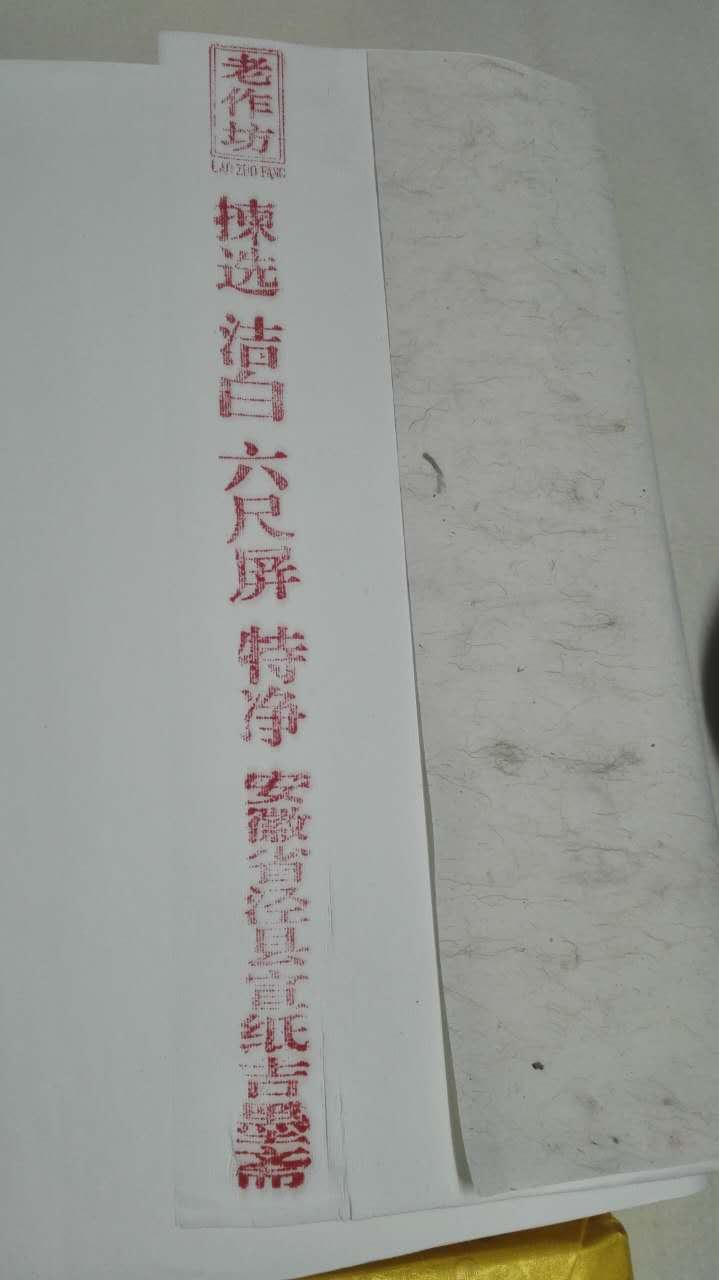 老作坊
LAO ZUO FANG
揀选 洁白 六尺屏 特净 安徽省泾县宣纸吉墨斋